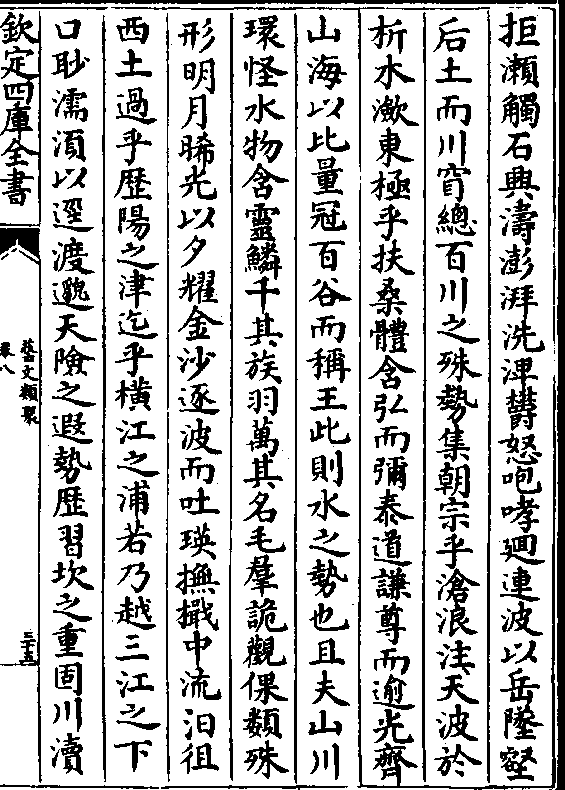 拒瀨觸石興濤澎湃洗渒鬱怒咆哮廻連波以岳墬壑
后土而川窅總百川之殊勢集朝宗乎滄浪注天波於
析木漱東極乎扶桑體含弘而彌泰道謙尊而逾光齊
山海以比量冠百谷而稱王此則水之勢也且夫山川
環怪水物含靈鱗千其族羽萬其名毛羣詭觀倮類殊
形明月晞光以夕耀金沙逐波而吐瑛撫檝中流汩徂
西土過乎歷陽之津迄乎橫江之浦若乃越三江之下
口眇濡湏以逕渡邈天險之遐勢歷習坎之重固川瀆
欽定四庫全書
藝文類聚
卷八
三十五